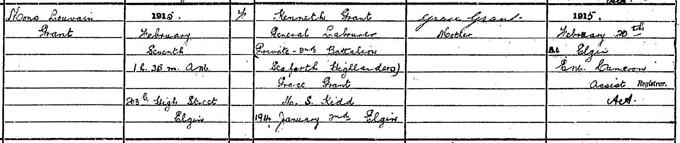 Mons Louvain
Grant
1915
February
Seventh
1 h. 35 m. A.M.
203b High Street
Elgin
F
Kenneth Grant
General Labourer
(Private - 2nd Battalion
Seaforth Highlanders)
Grace Grant
M. S. Kidd
1914 January 2nd Elgin
Grace Grant
Mother
1915
February 20th
At Elgin
Cameron
Assist Registrar.